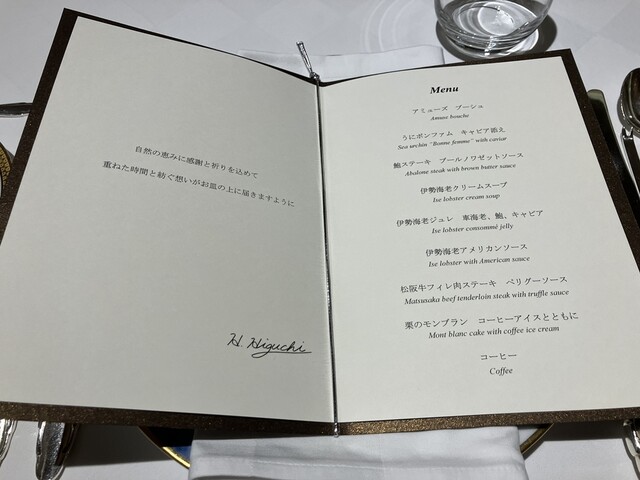 自然の恵みに感謝と祈りを込めて
重ねた時間と紡ぐ想いがお皿の上に届きますように
H. Higuchi
Menu
アミューズ ブーシュ
Amuse bouche
うにボンファム キャビア添え
Sea urchin "Bonne femme" with caviar
鮑ステーキ ブールノワゼットソース
Abalone steak with brown butter sauce
伊勢海老クリームスープ
Ise lobster cream soup
伊勢海老ジュレ 車海老、鮑、キャビア
Ise lobster consommé jelly
伊勢海老アメリカンソース
Ise lobster with American sauce
松阪牛フィレ肉ステーキ ペリグーソース
Matsusaka beef tenderloin steak with truffle sauce
栗のモンブラン コーヒーアイスとともに
Mont blanc cake with coffee ice cream
コーヒー
Coffee